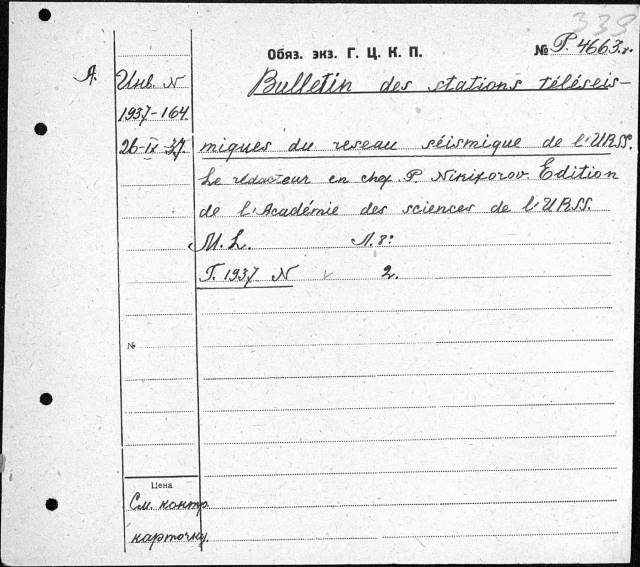 333
Обяз. экз. Г. Ц. К. П. № Р. 4663 г.
А. Инв. N Bulletin des stations téléseis-
1937-164
26-IX-37. miques du reseau séismique de l'URSS.
Le rédacteur en chef P. Nikiforov. Edition
de l'Académie des sciences de l'URSS.
М. L. Л. 8°
Г. 1937 N v 2.
№
Цена
См. контр.
карточку.